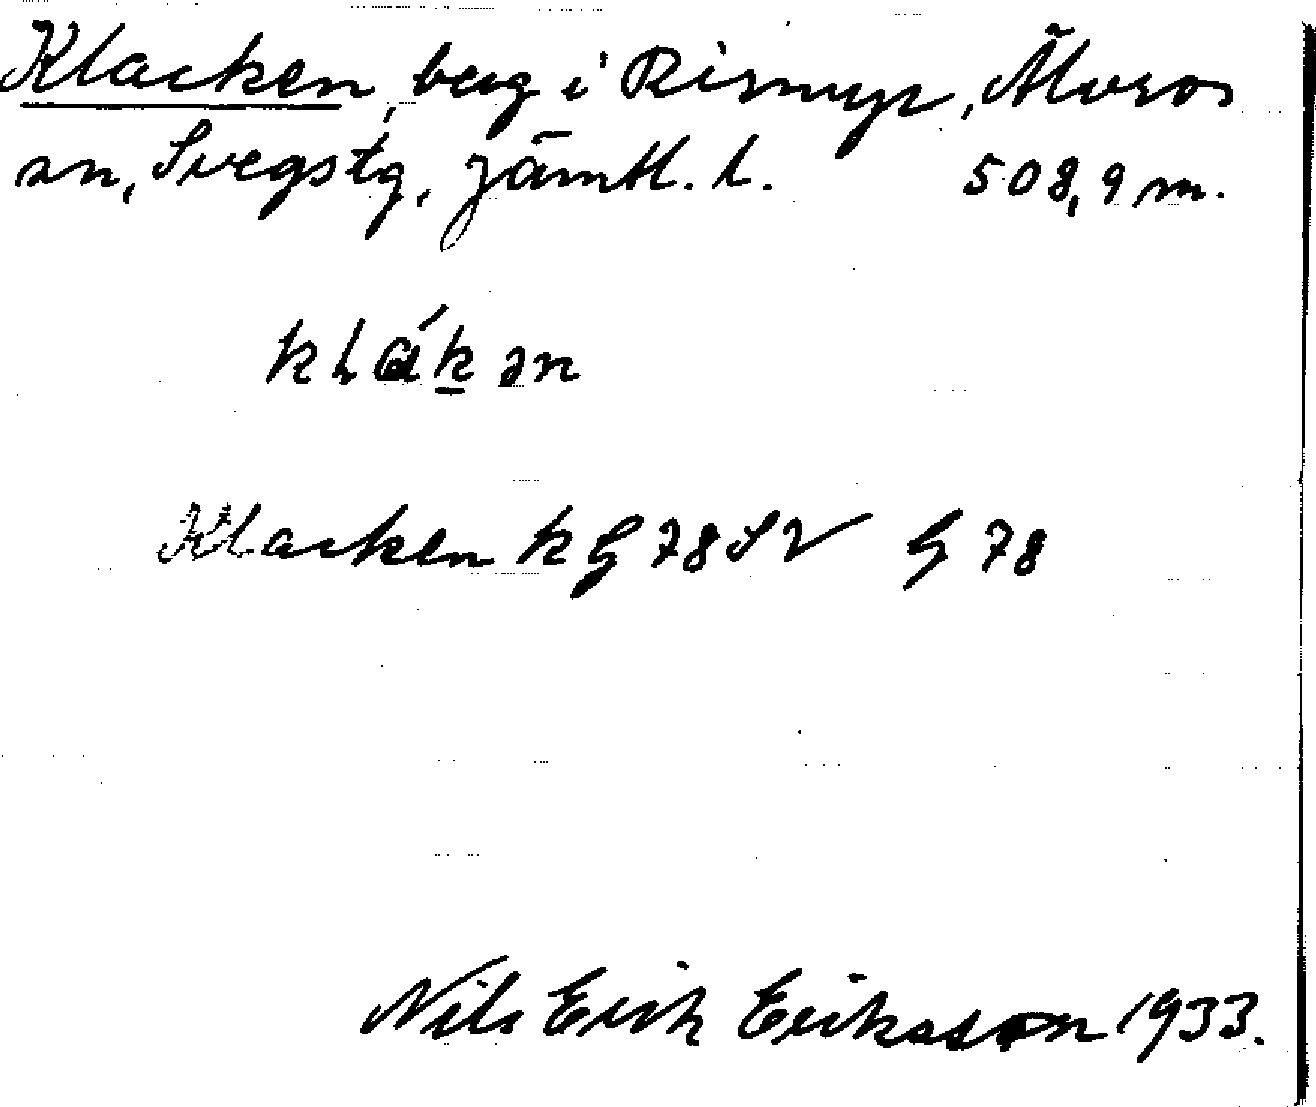 Klacken, berg i Rismyr, Älvros
sn, Svegs tg, Jämtl. l. 508,9 m.
klák̲ən
Klacken k G 78 SV G 78
Nils Erik Eriksson 1933.